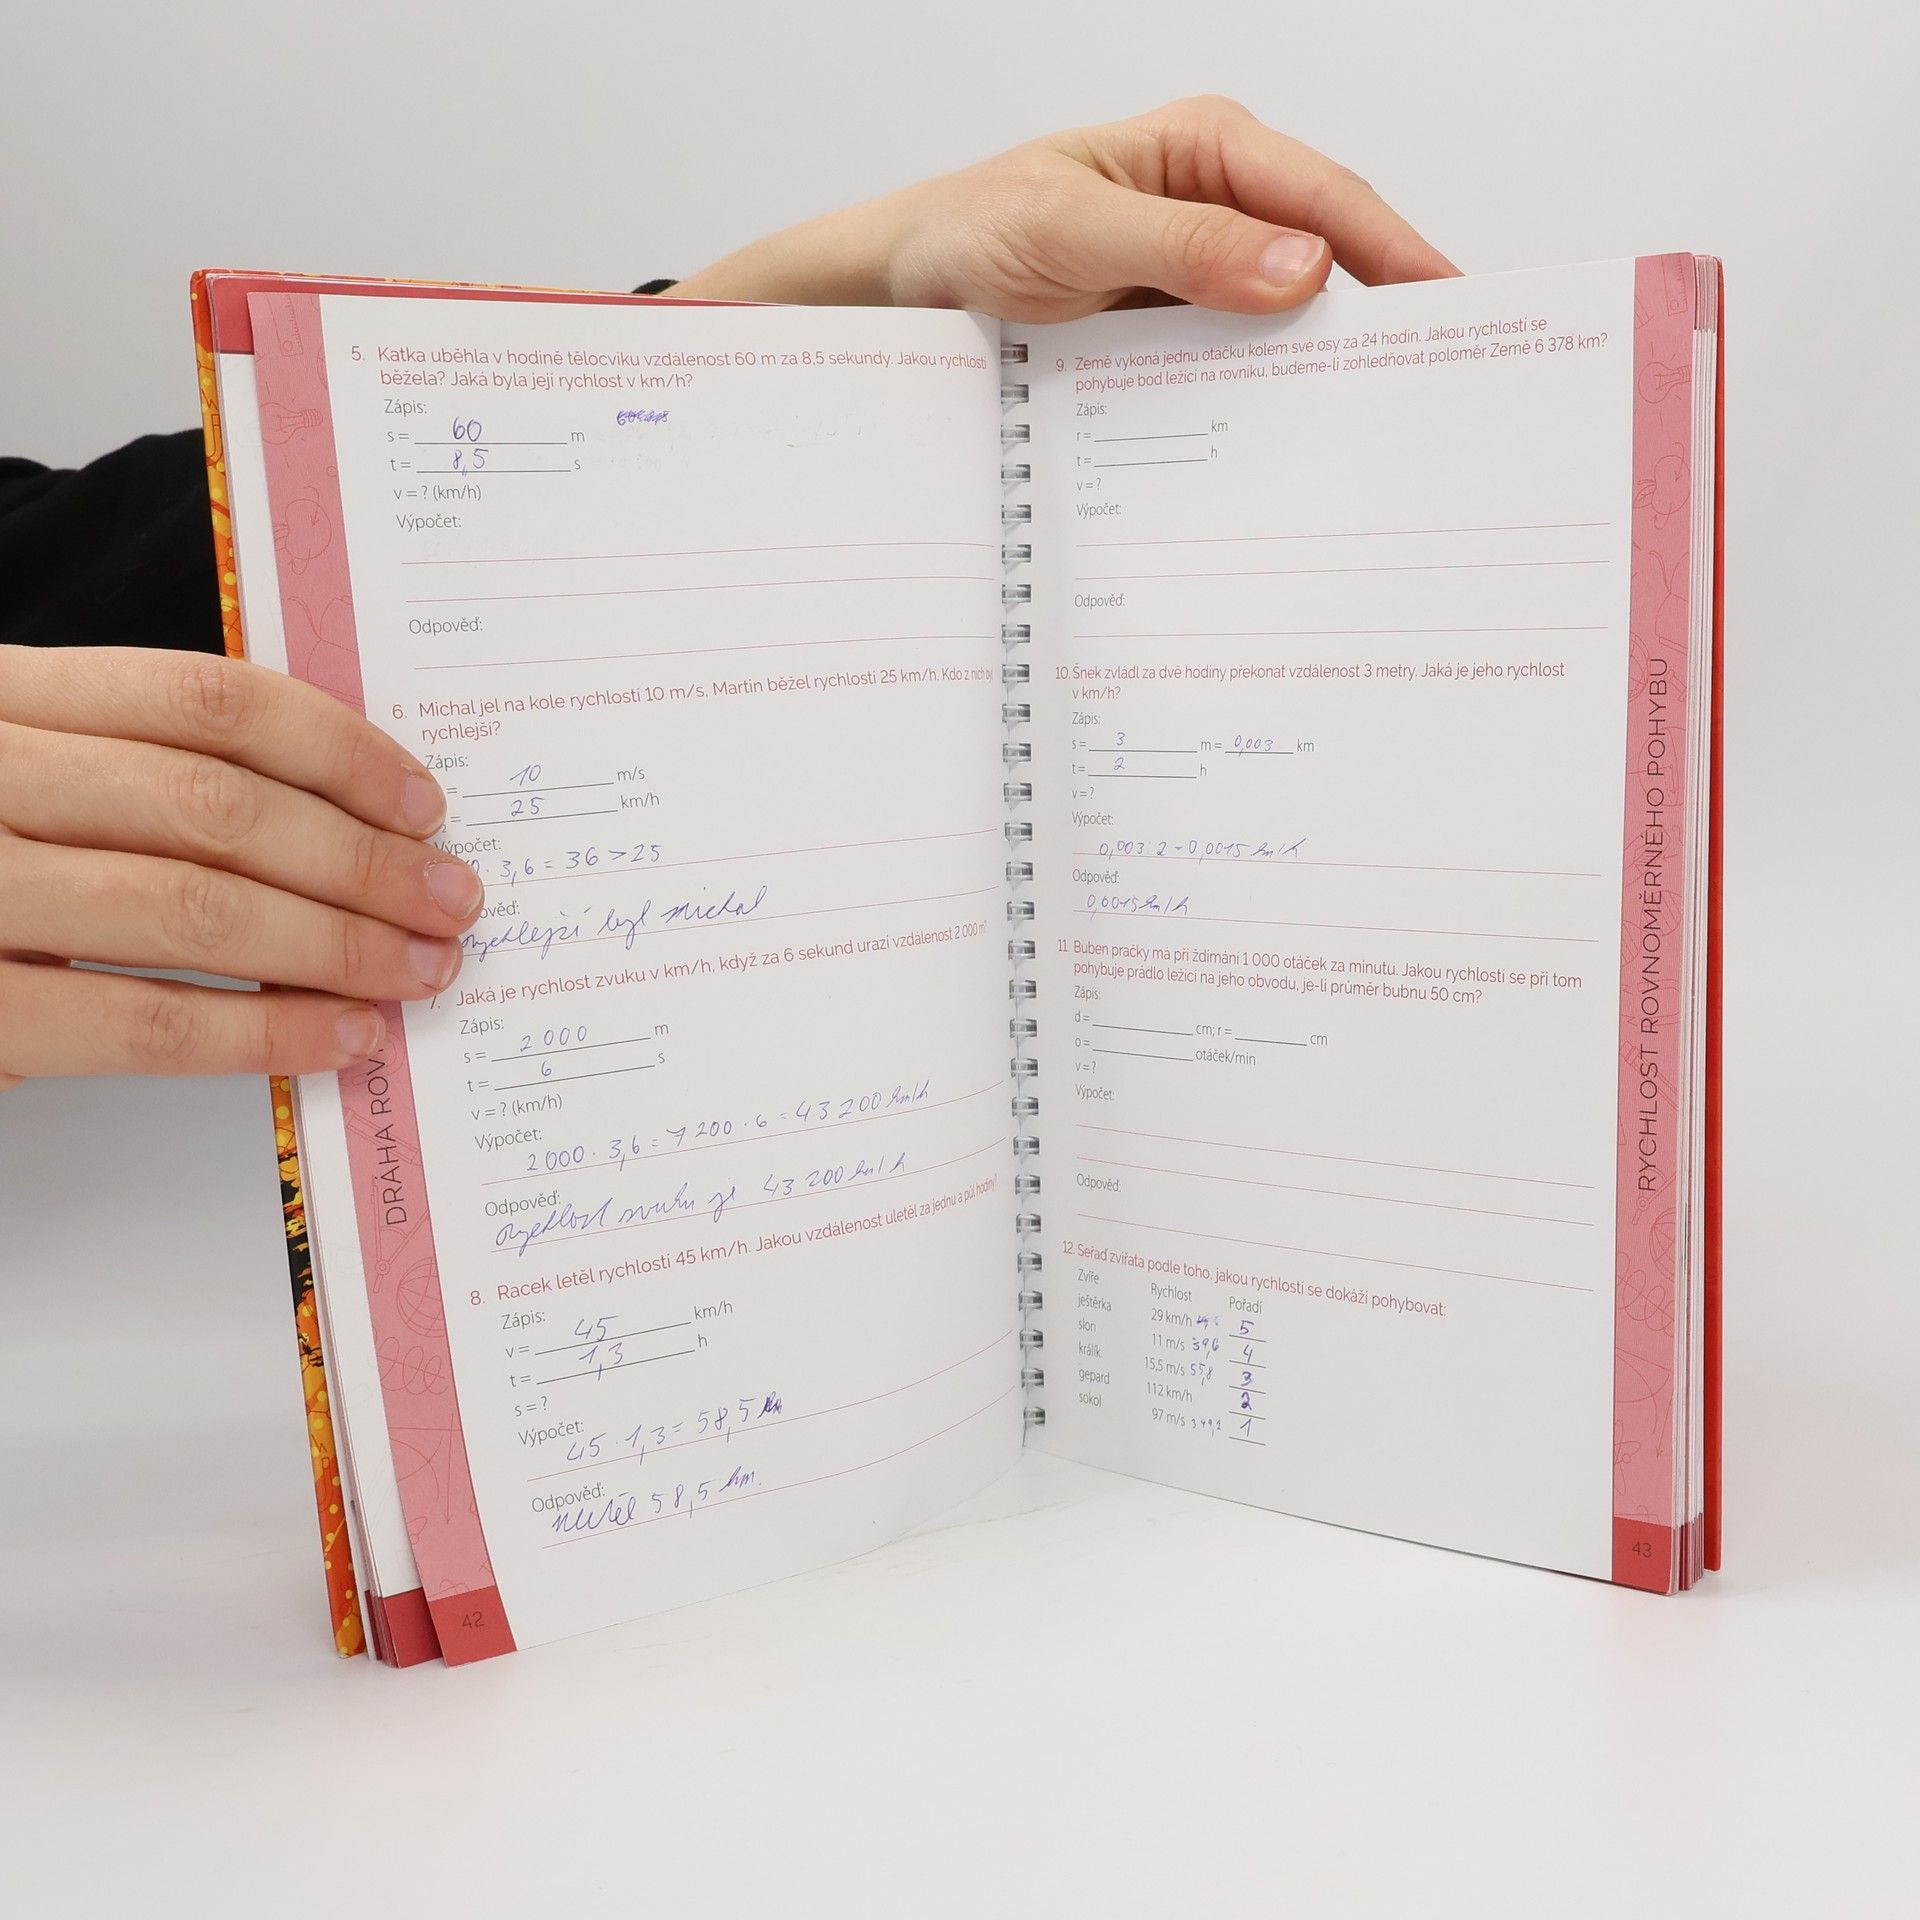 5. Katka uběhla v hodině tělocviku vzdálenost 60 m za 8,5 sekundy. Jakou rychlostí
běžela? Jaká byla její rychlost v km/h?
Zápis:
s = 60 m
t = 8,5 s
v = ? (km/h)
Výpočet:
Odpověď:
6. Michal jel na kole rychlostí 10 m/s, Martin běžel rychlostí 25 km/h. Kdo z nich byl
rychlejší?
Zápis:
= 10 m/s
2 = 25 km/h
Výpočet:
. 3,6 = 36 > 25
ověď:
rychlejší byl Michal
7. Jaká je rychlost zvuku v km/h, když za 6 sekund urazí vzdálenost 2 000 m?
Zápis:
s = 2 000 m
t = 6 s
v = ? (km/h)
Výpočet:
2000 . 3,6 = 7 200 . 6 = 43 200 km/h
Odpověď:
rychlost zvuku je 43 200 km/h
8. Racek letěl rychlostí 45 km/h. Jakou vzdálenost uletěl za jednu a půl hodiny?
Zápis:
v = 45 km/h
t = 1,3 h
s = ?
Výpočet:
45 . 1,3 = 58,5 km
Odpověď:
uletěl 58,5 km.
DRÁHA ROV
42
9. Země vykoná jednu otáčku kolem své osy za 24 hodin. Jakou rychlostí se
pohybuje bod ležící na rovníku, budeme-li zohledňovat poloměr Země 6 378 km?
Zápis:
r = km
t = h
v = ?
Výpočet:
Odpověď:
10. Šnek zvládl za dvě hodiny překonat vzdálenost 3 metry. Jaká je jeho rychlost
v km/h?
Zápis:
s = 3 m = 0,003 km
t = 2 h
v = ?
Výpočet:
0,003 : 2 = 0,0015 km/h
Odpověď:
0,0015 km/h
11. Buben pračky má při ždímání 1 000 otáček za minutu. Jakou rychlostí se při tom
pohybuje prádlo ležící na jeho obvodu, je-li průměr bubnu 50 cm?
Zápis:
d = cm; r = cm
o = otáček/min
v = ?
Výpočet:
Odpověď:
12. Seřaď zvířata podle toho, jakou rychlostí se dokáží pohybovat:
Zvíře Rychlost Pořadí
ještěrka 29 km/h 5
slon 11 m/s 39,6 4
králík 15,5 m/s 55,8 3
gepard 112 km/h 2
sokol 97 m/s 349,2 1
RYCHLOST ROVNOMĚRNÉHO POHYBU
43